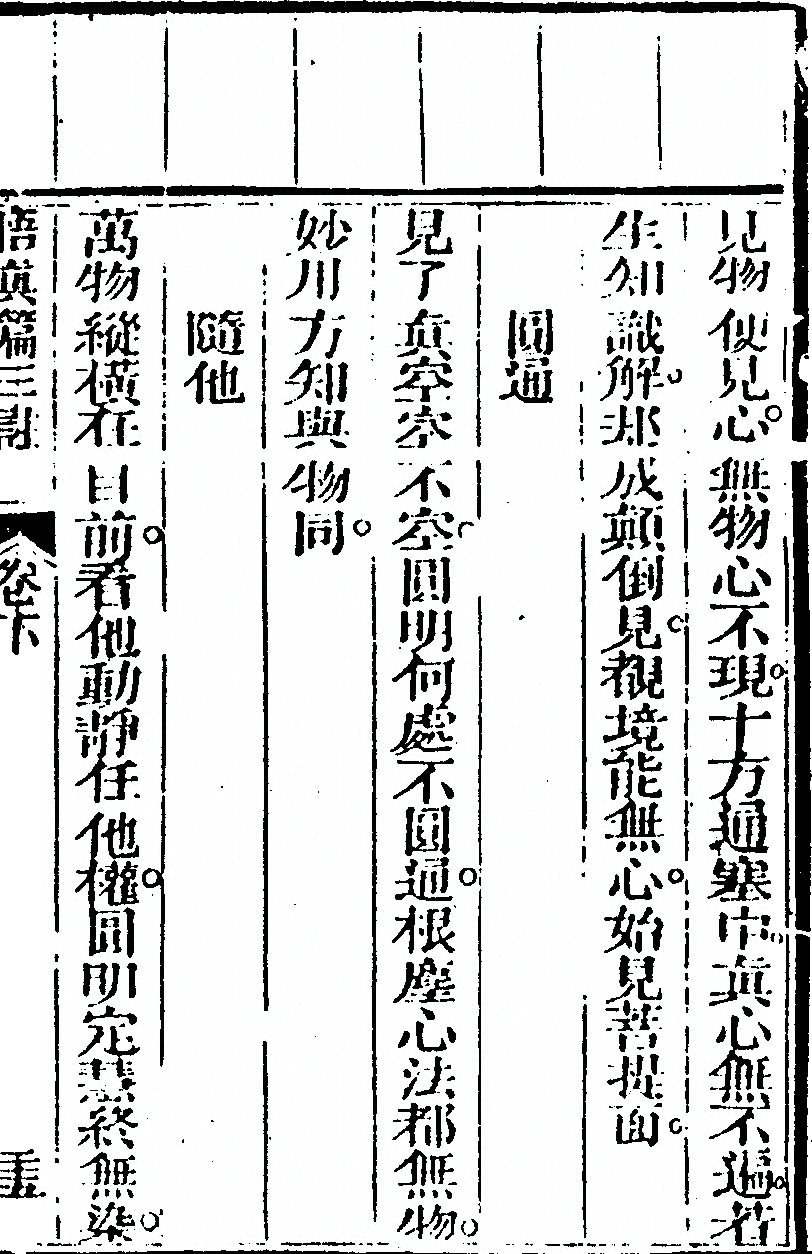 見物便見心。無物心不現。十方通塞中。真心無不遍。若
生知識解。却成顛倒見。覩境能無心。始見菩提面。
圓通
見了真空空不空。圓明何處不圓通。根塵心法都無物。
妙用方知與物同。
隨他
萬物縱橫在目前。看他動靜任他權。圓明定慧終無染。
悟真篇三註 卷下